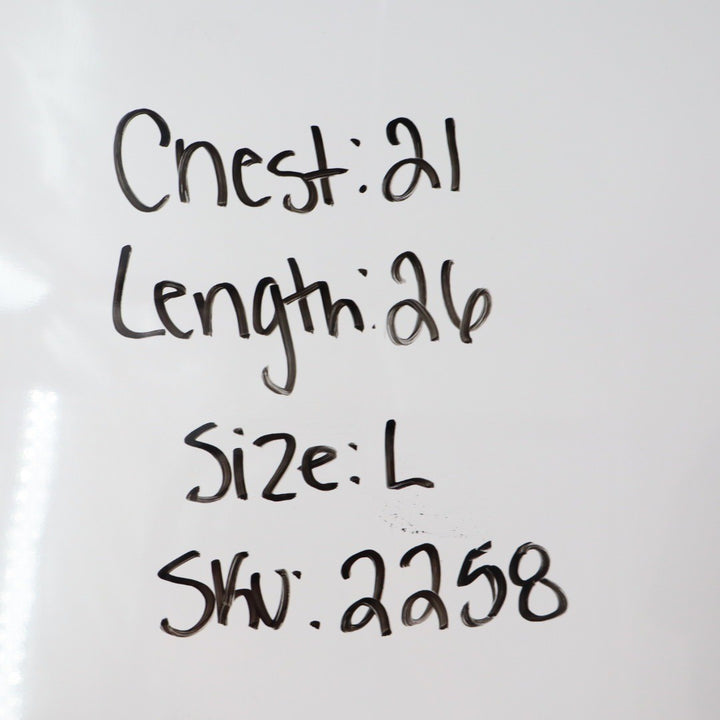 Chest: 21
Length: 26
Size: L
SKU: 2258